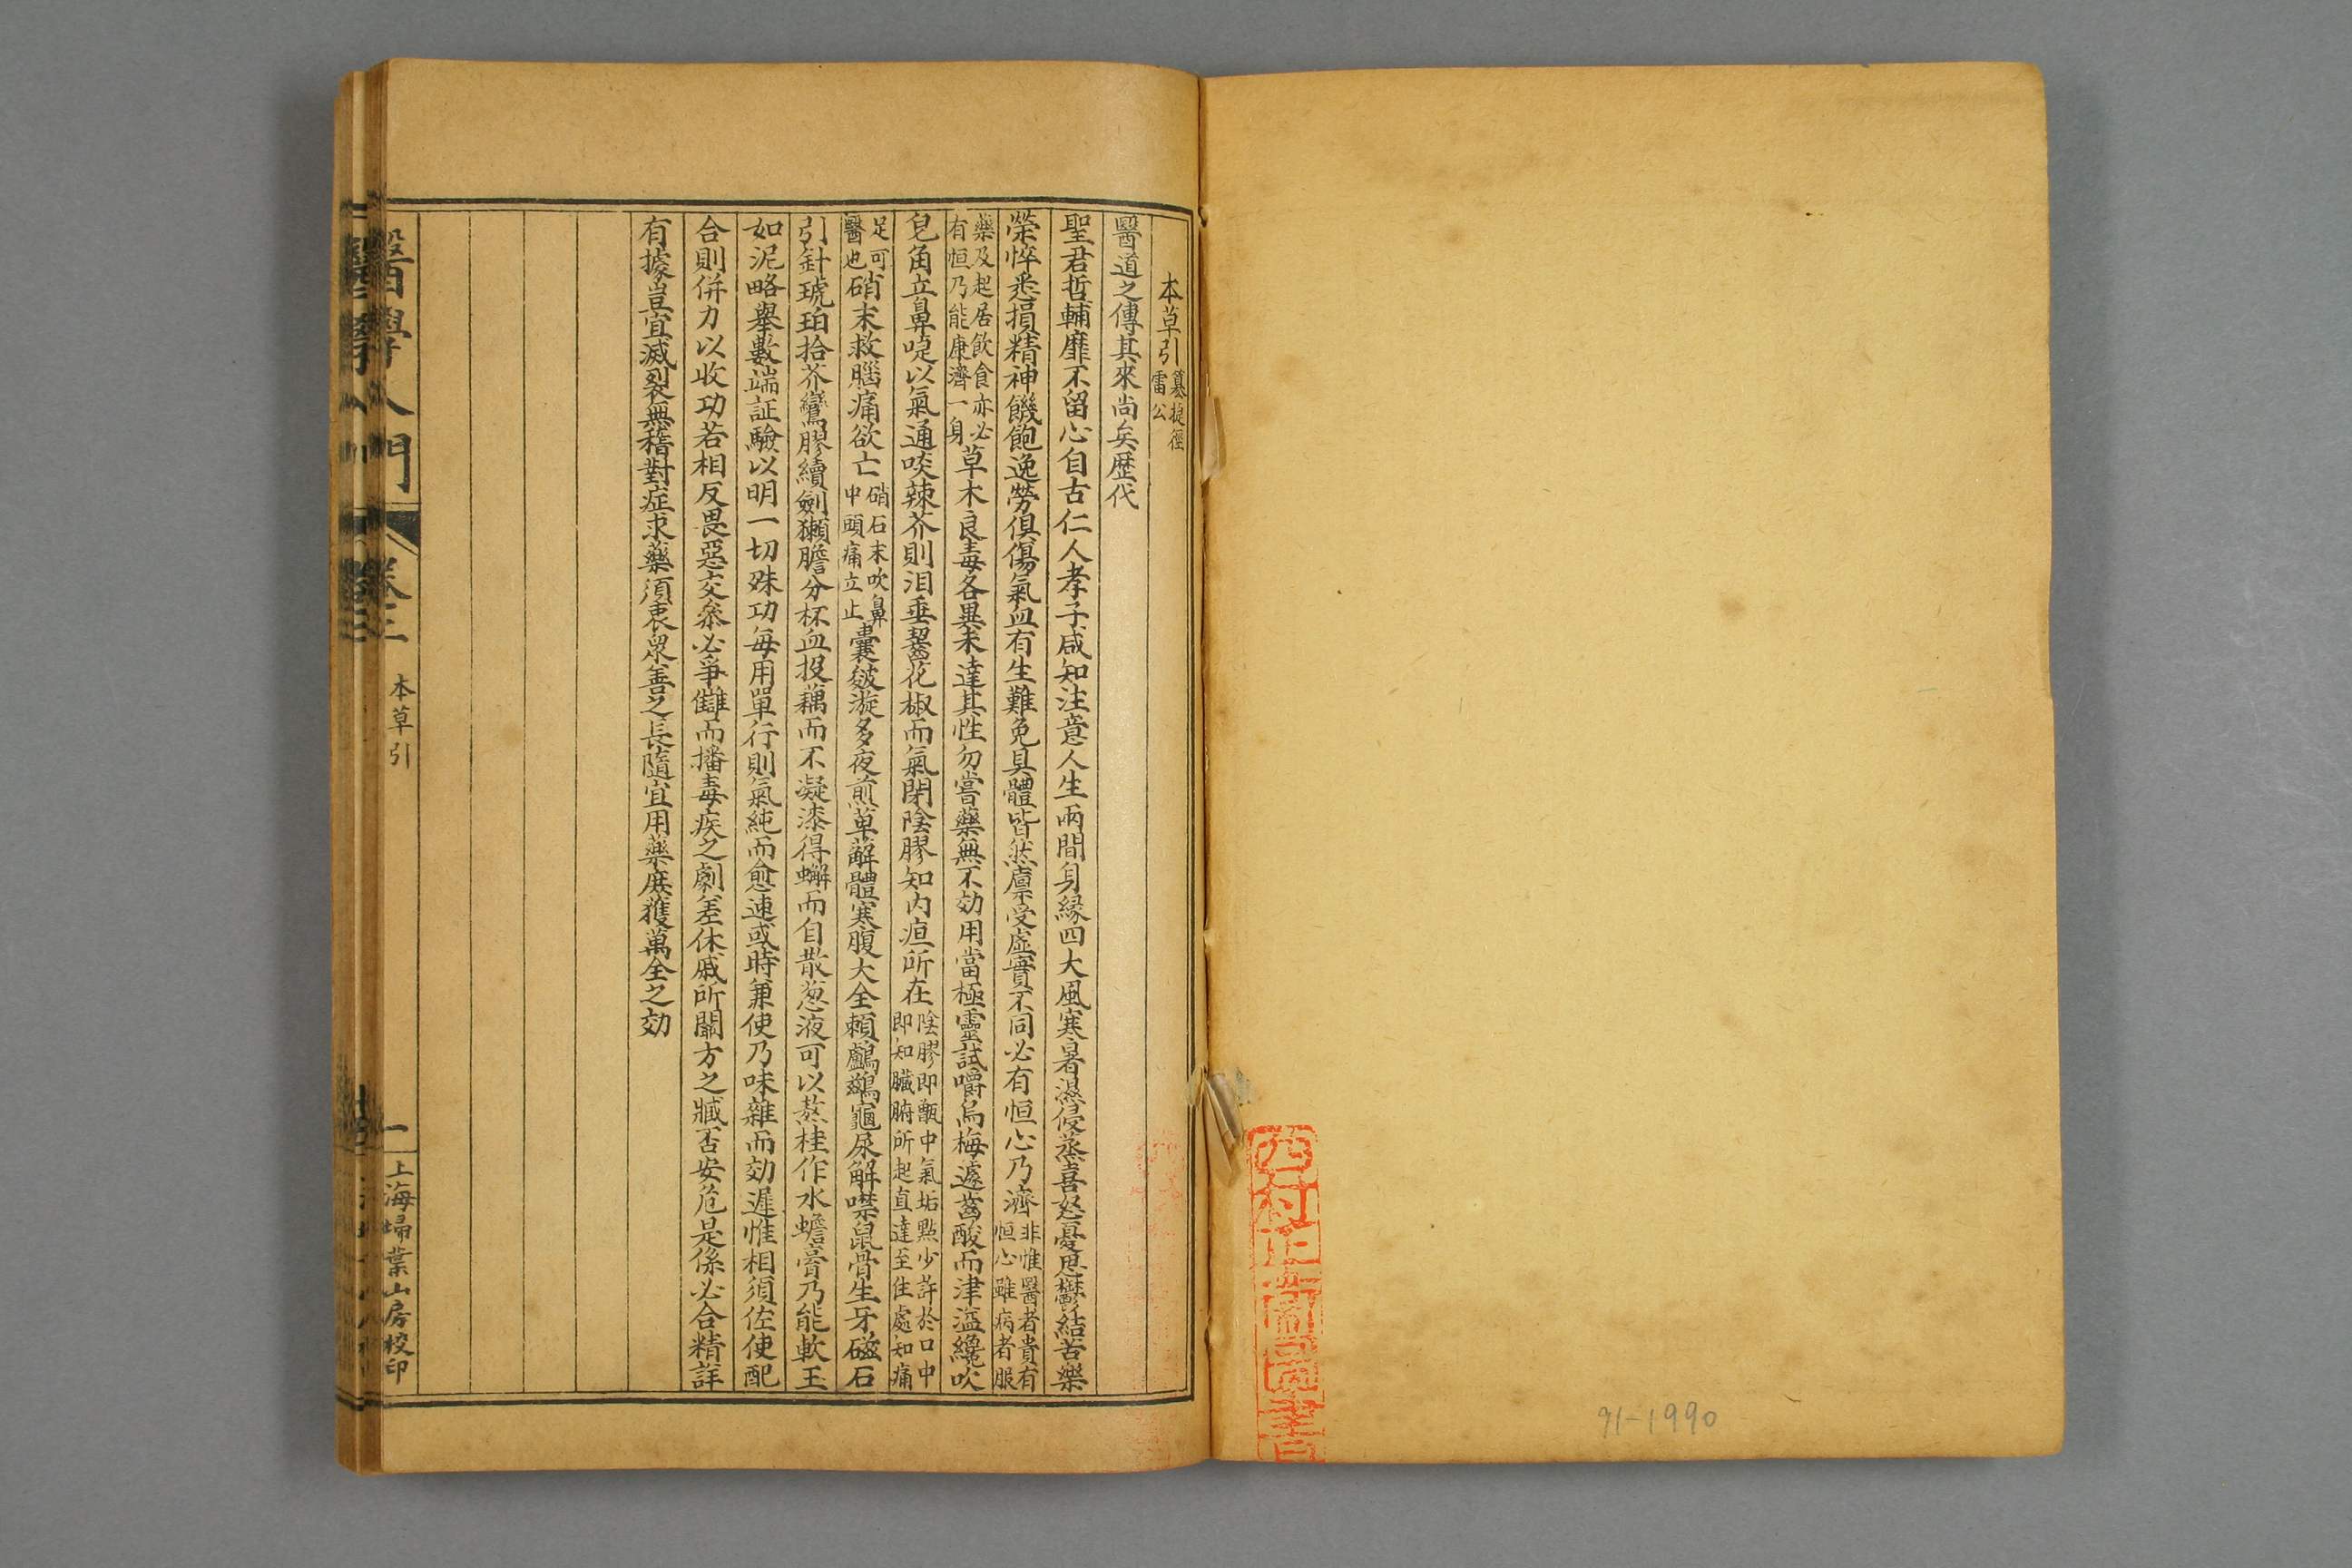 本草引 纂捷徑雷公
醫道之傳其來尚矣歷代
聖君哲輔靡不留心自古仁人孝子咸知注意人生兩間身緣四大風寒暑濕侵蒸喜怒憂思鬱結苦樂
榮悴悉損精神饑飽逸勞俱傷氣血有生難免具體皆然稟受虛實不同必有恒心乃濟 非惟醫者貴有恒心雖病者服
藥及起居飲食亦必有恒乃能康濟一身 草木良毒各異未達其性勿嘗藥無不効用當極靈試嚼烏梅遽齒酸而津溢纔吹
皂角立鼻啑以氣通啖辣芥則泪垂齧花椒而氣閉陰膠知內疸所在 陰膠即甑中氣垢點少許於口中即知臟腑所起直達至住處知痛
足可醫也 硝末救腦痛欲亡 硝石末吹鼻中頭痛立止 囊皺漩多夜煎萆薢體寒腹大全賴鸕鷀龜尿解噤鼠骨生牙磁石
引針琥珀拾芥鸞膠續劍獺膽分杯血投藕而不凝漆得蠏而自散葱液可以熬桂作水蟾膏乃能軟玉
如泥略舉數端証驗以明一切殊功每用單行則氣純而愈速或時兼使乃味雜而効遲惟相須佐使配
合則併力以收功若相反畏惡交叅必爭讎而播毒疾之劇差休戚所關方之臧否安危是係必合精詳
有據豈宜滅裂無稽對症求藥須衷衆善之長隨宜用藥庶獲萬全之効
醫學入門
卷三
本草引
一
上海埽葉山房校印
91-1990